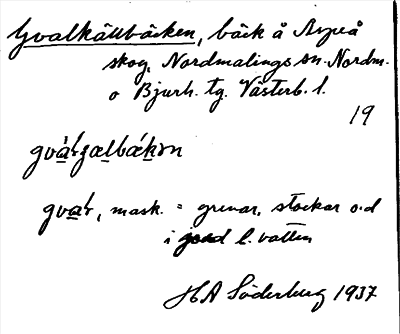 Gvalkällbäcken, bäck å Aspeå
skog, Nordmalings sn. Nordm.
o Bjurh. tg. Västerb. l.
19
gvałʒælbäkɔn
gvał, mask. = grenar, stockar o.d
i jord l. vatten
HA Söderberg 1937